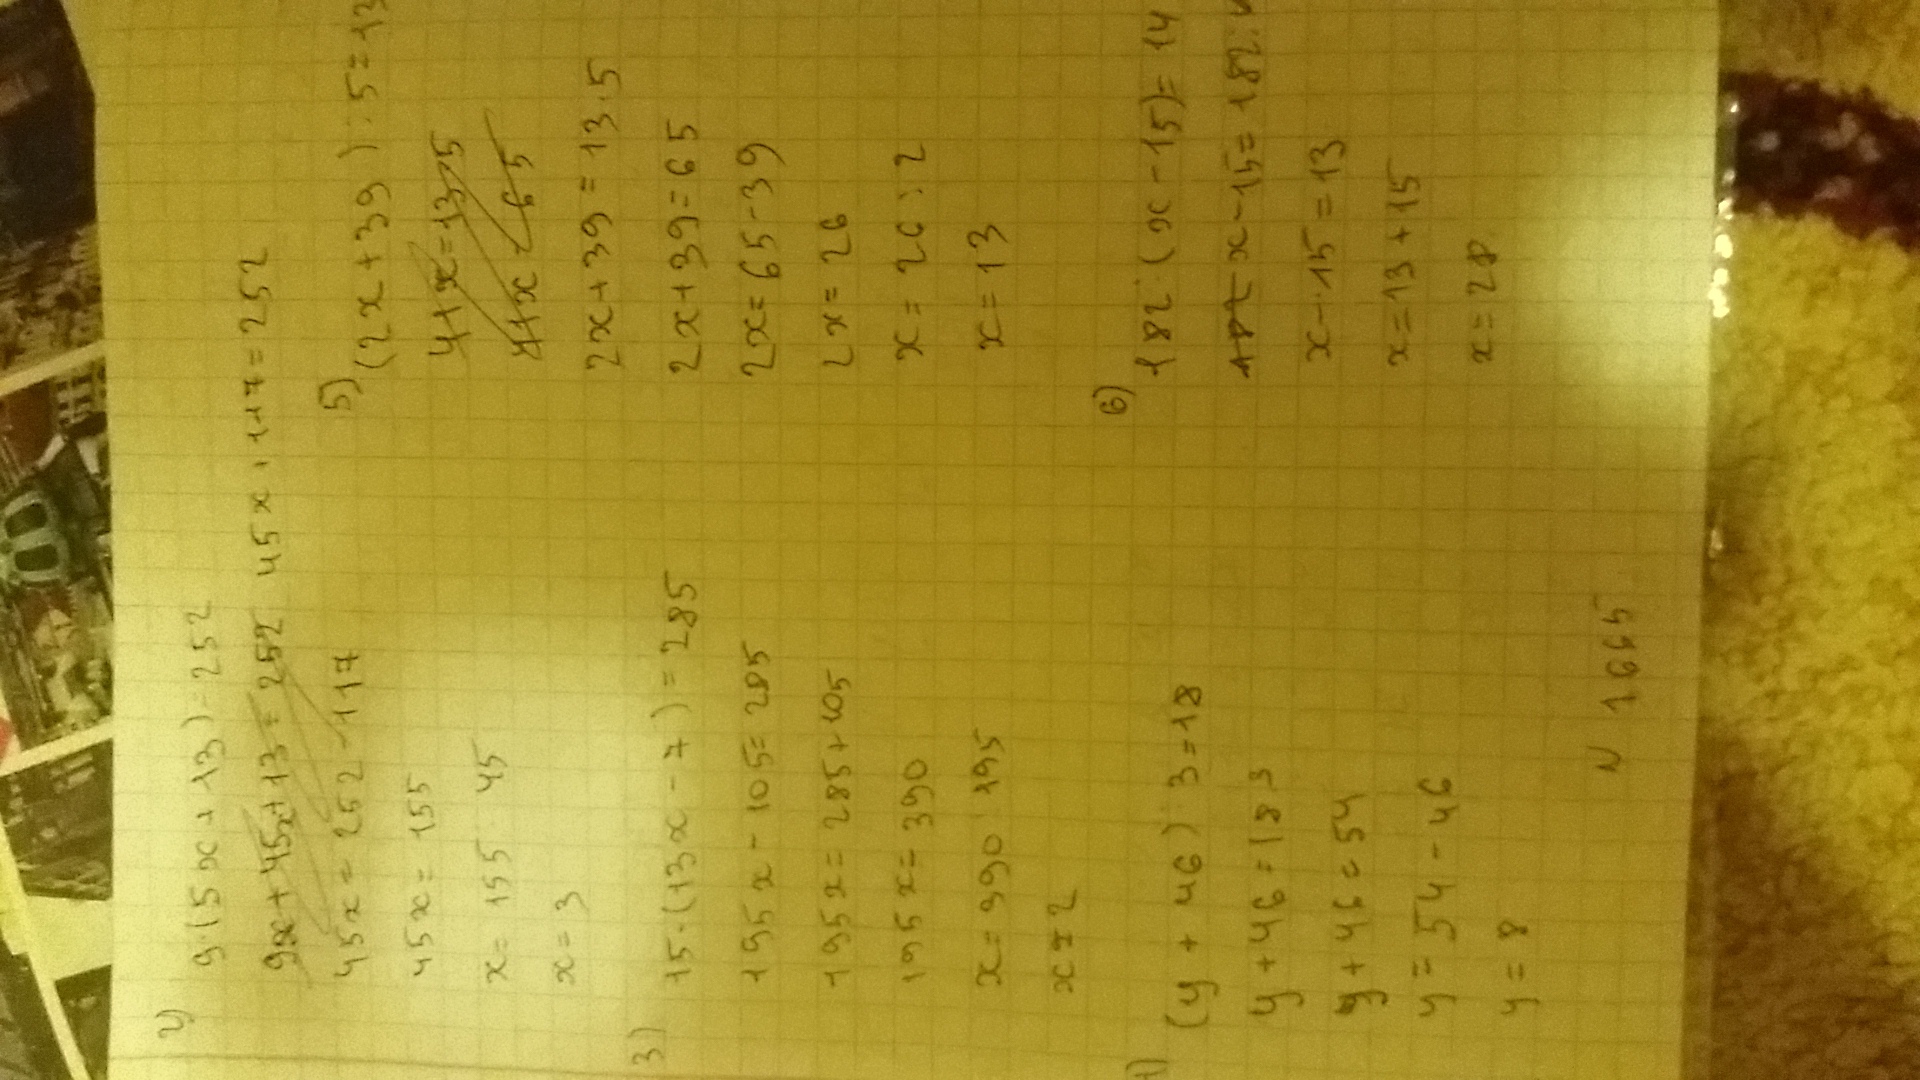 2)
9·(5x+13)=252
9x+45x+13=252 45x+117=252
45x=252-117
45x=155
x=155:45
x=3
3)
15·(13x-7)=285
195x-105=285
195x=285+105
195x=390
x=390:195
x=2
(y+46):3=18
y+46=18·3
y+46=54
y=54-46
y=8
N 1665
5)
(2x+39):5=13
4+x=13·5
4+x=65
2x+39=13·5
2x+39=65
2x=65-39
2x=26
x=26:2
x=13
6)
182:(x-15)=14
182 x-15=182:
x-15=13
x=13+15
x=28